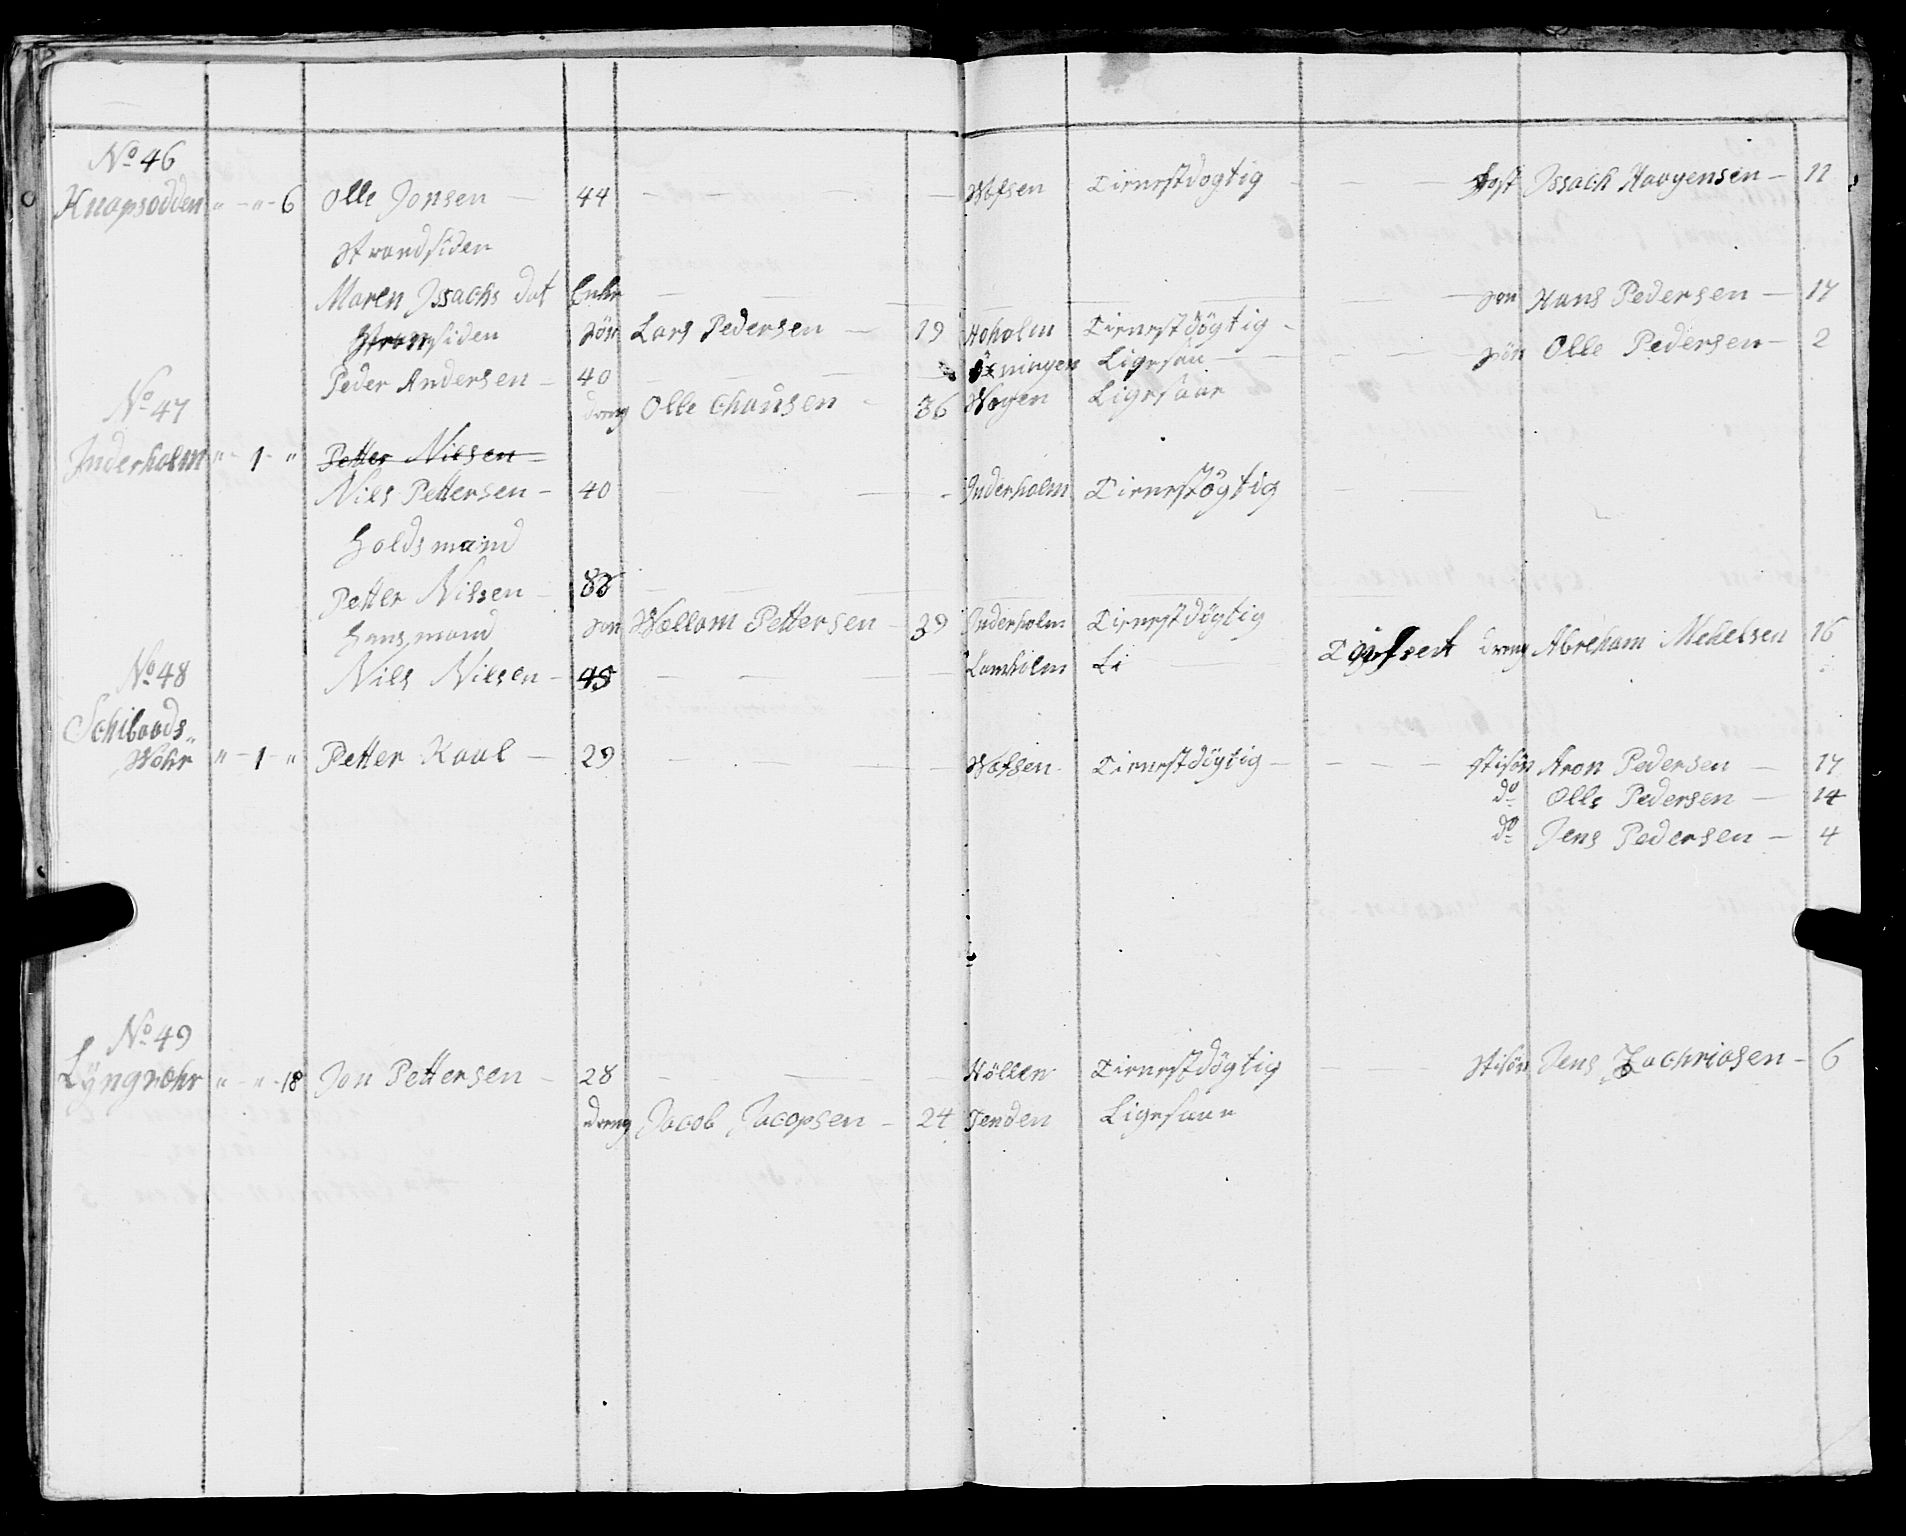 No 46
Knapsodden " - " - 6 Olle Jonsen - 44 - - - - Wefsen Tienestdögtig - - - fost Issach Haagensen - 11
Strandsiden
Maren Issachs dat Enke - - - - - - - son Hans Pedersen - 17
siden sön Lars Pedersen - 19 Hoholm Tienestdögtig - - - sön Olle Pedersen - 2
Peder Andersen - 40 - - - - Ligesaa -
No 47 dreng Olle Chansen - 36 Wogen Ligesaa
Inderholm " - 1 - " Petter Nilsen
Nils Pettersen - 40 - - - - Inderholm Tienestdögtig -
Holdsmand
Petter Nilsen - - - -
Hansmand son Wellom Pettersen - 39 Inderholm Tienestdögtig
No 48 Nils Nilsen - 45 - - - Lamholm Li - dreng Abreham Mekelsen 16
Schibaads
Wohr " - 1 - " Petter Kaal - 29 - - - Wefsen Tienestdögtig - - - - stisön Aron Pedersen - 17
do Olle Pedersen - 14
do Jens Pedersen - 4
No 49
Lyngwohr " - " - 18 Jon Pettersen - 28 - - - Höllen Tienestdögtig - - - stisön Jens Zachriasen - 6
dreng Jacob Jacopsen - 24 Tenden Ligesaa